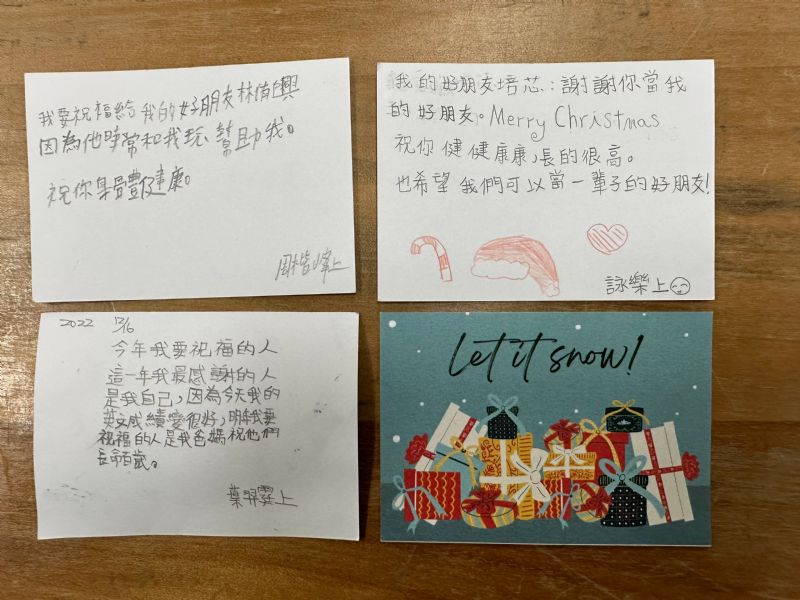 我要祝福給我的好朋友林侑興
因為他時常和我玩、幫助我。
祝你身體健康。
周楷峰上
我的好朋友培芯:謝謝你當我
的好朋友。Merry Christmas
祝你健健康康,長的很高。
也希望我們可以當一輩子的好朋友!
詠樂上
2022 12/6
今年我要祝福的人
這一年我最感謝的人
是我自己,因為今天我的
英文成績變很好,明年我要
祝福的人是我爸媽祝他們
長命百歲。
葉羿霙上
Let it snow!